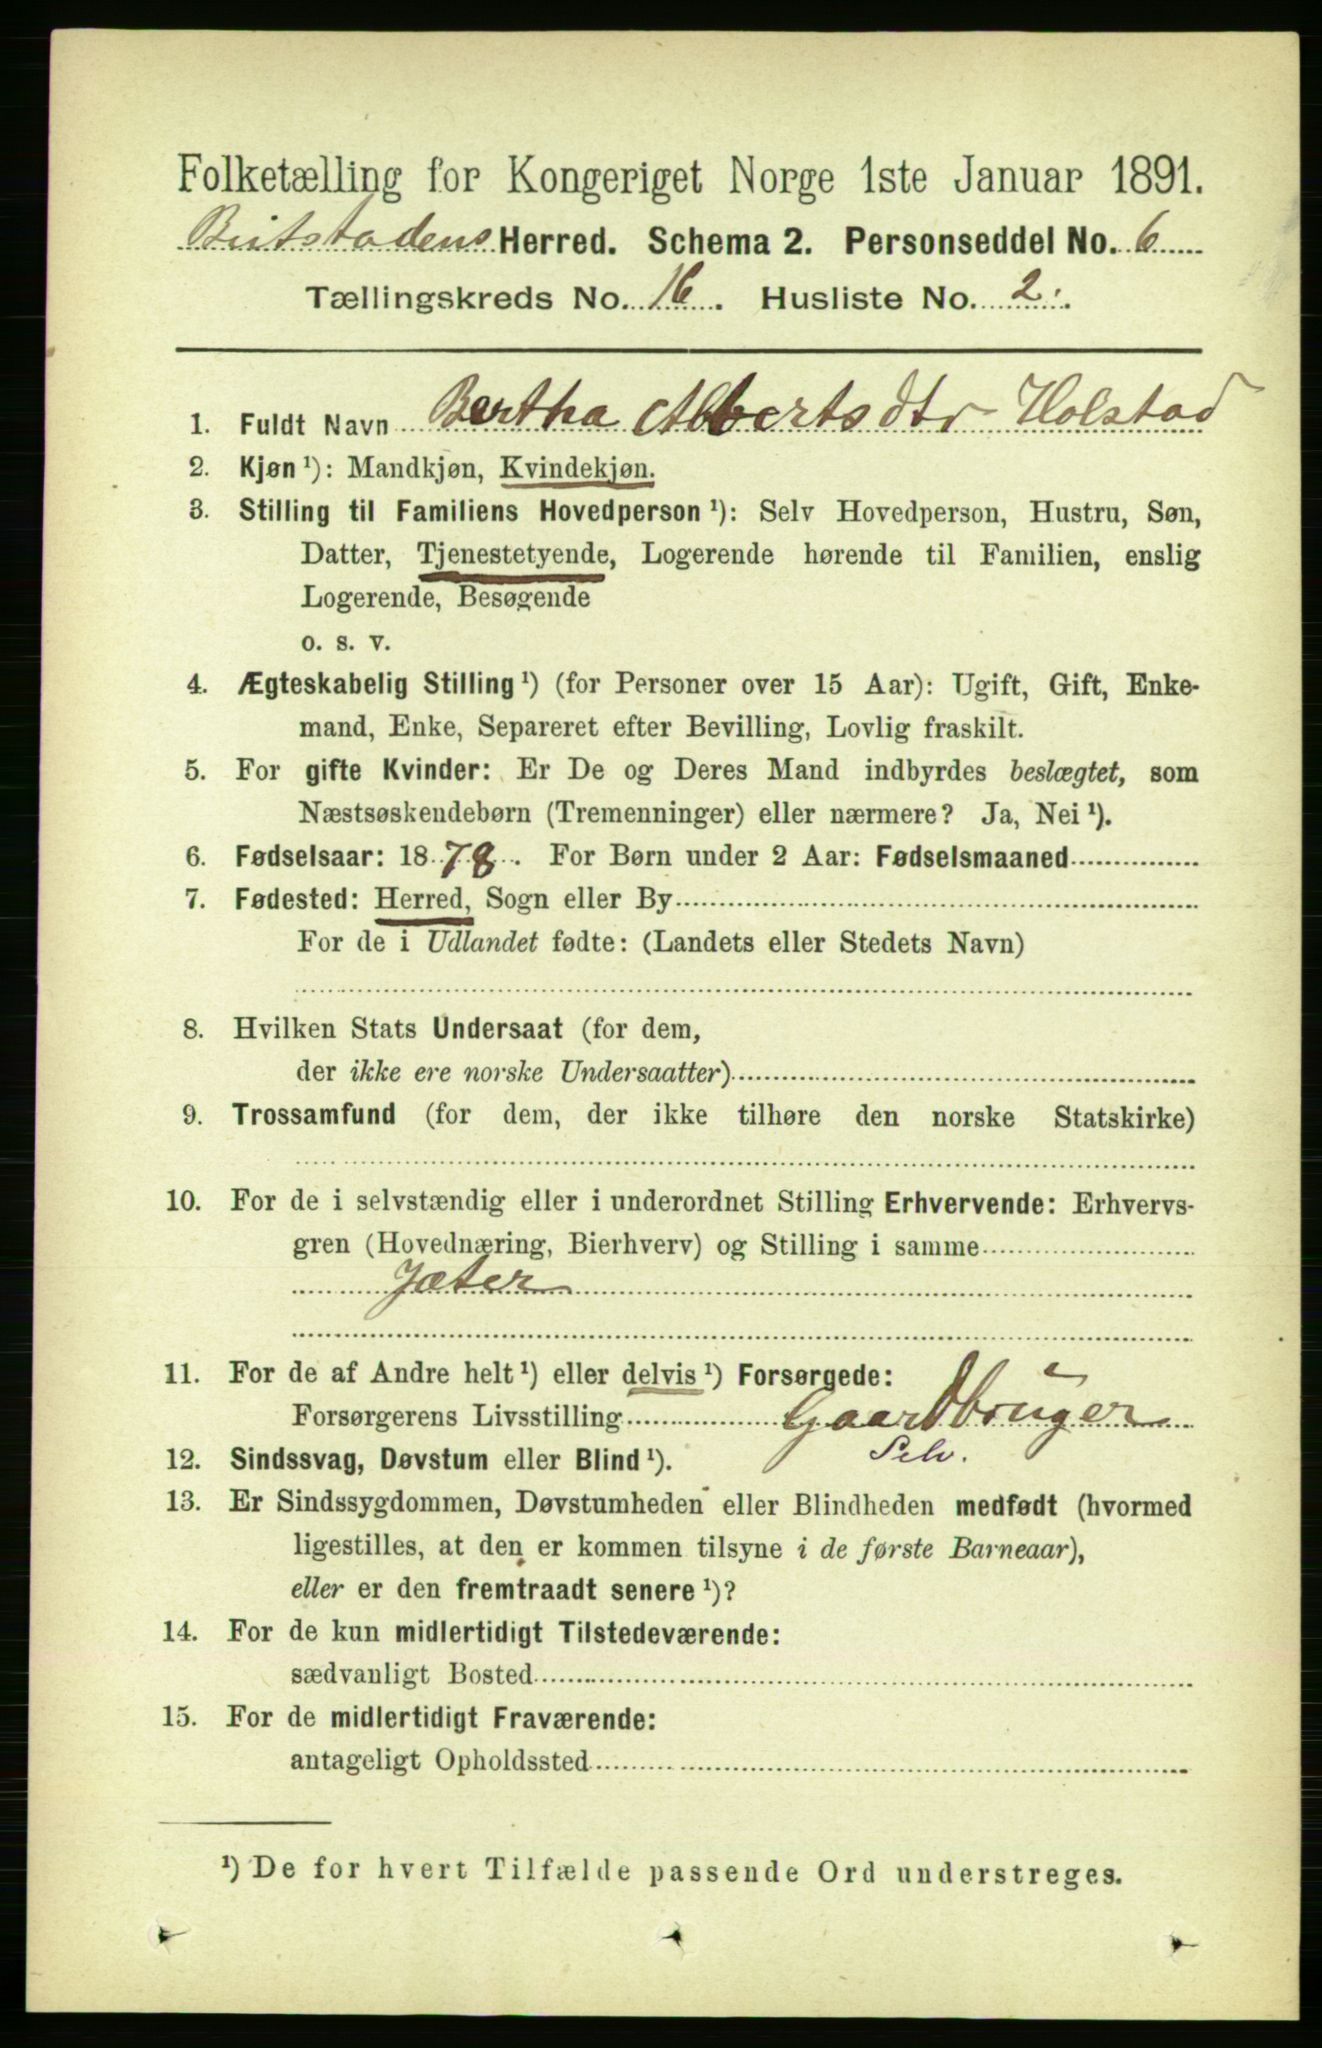 Folketælling for Kongeriget Norge 1ste Januar 1891.
Beitstadens Herred. Schema 2. Personseddel No. 6
Tællingskreds No. 16. Husliste No. 2.
1. Fuldt Navn Bertha Albertsdtr Holstad
2. Kjøn ¹): Mandkjøn, Kvindekjøn.
3. Stilling til Familiens Hovedperson ¹): Selv Hovedperson, Hustru, Søn,
Datter, Tjenestetyende, Logerende hørende til Familien, enslig
Logerende, Besøgende
o. s. v.
4. Ægteskabelig Stilling ¹) (for Personer over 15 Aar): Ugift, Gift, Enke-
mand, Enke, Separeret efter Bevilling, Lovlig fraskilt.
5. For gifte Kvinder: Er De og Deres Mand indbyrdes beslægtet, som
Næstsøskendebørn (Tremenninger) eller nærmere? Ja, Nei ¹).
6. Fødselsaar: 1878. For Børn under 2 Aar: Fødselsmaaned
7. Fødested: Herred, Sogn eller By
For de i Udlandet fødte: (Landets eller Stedets Navn)
8. Hvilken Stats Undersaat (for dem,
der ikke ere norske Undersaatter)
9. Trossamfund (for dem, der ikke tilhøre den norske Statskirke)
10. For de i selvstændig eller i underordnet Stilling Erhvervende: Erhvervs-
gren (Hovednæring, Bierhverv) og Stilling i samme
Jæter
11. For de af Andre helt ¹) eller delvis ¹) Forsørgede:
Forsørgerens Livsstilling Gaardbruger
Selv.
12. Sindssvag, Døvstum eller Blind ¹).
13. Er Sindssygdommen, Døvstumheden eller Blindheden medfødt (hvormed
ligestilles, at den er kommen tilsyne i de første Barneaar),
eller er den fremtraadt senere ¹)?
14. For de kun midlertidigt Tilstedeværende:
sædvanligt Bosted
15. For de midlertidigt Fraværende:
antageligt Opholdssted
¹) De for hvert Tilfælde passende Ord understreges.